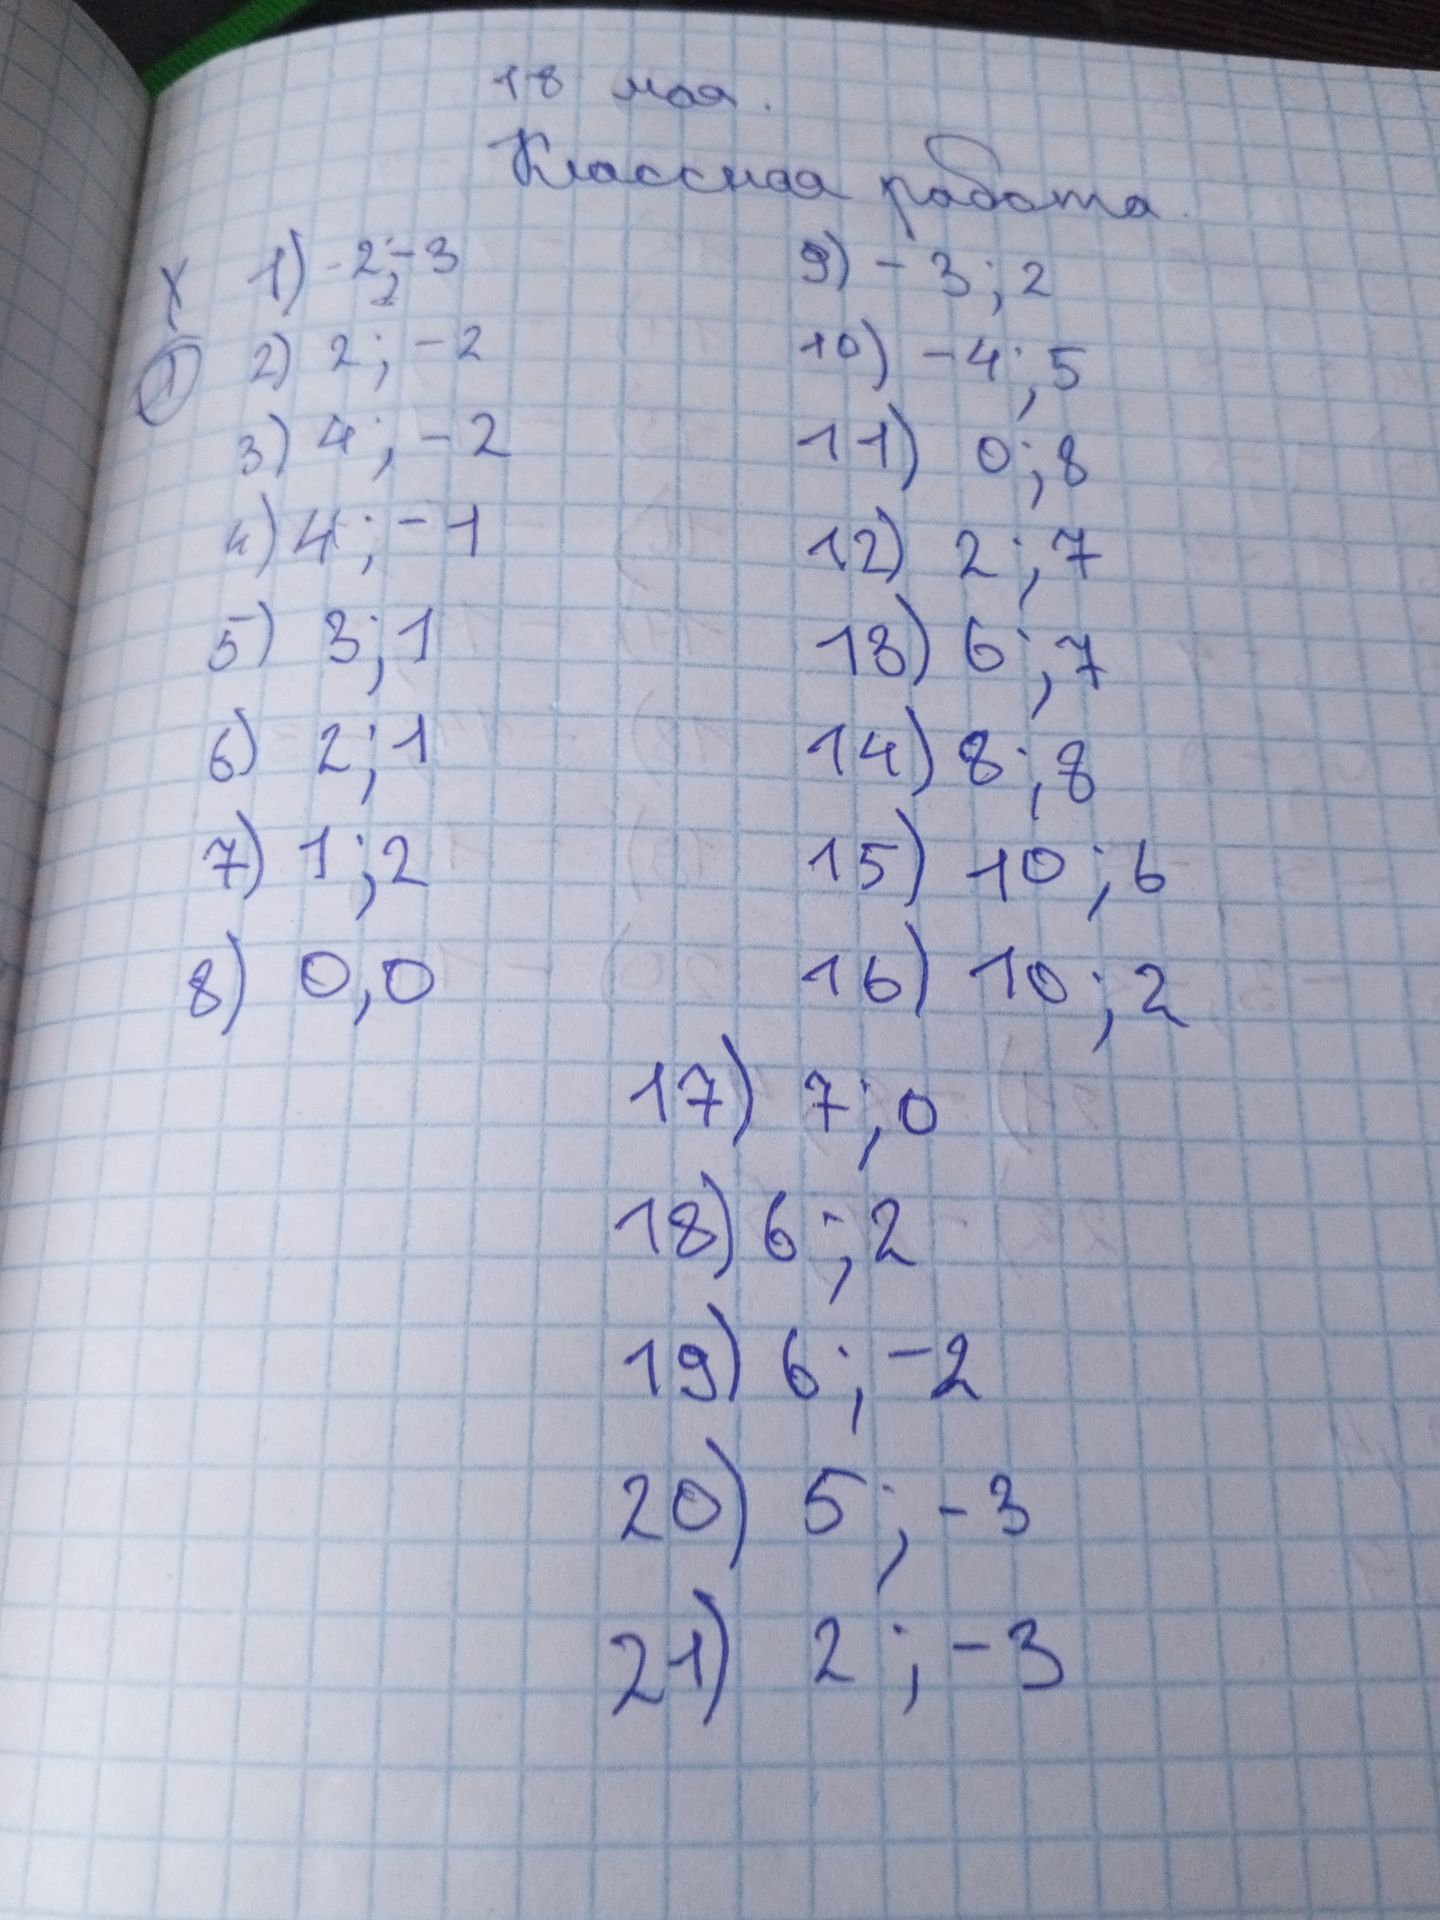 18 мая.
Классная работа.
1) -2; -3
2) 2; -2
3) 4; -2
4) 4; -1
5) 3; 1
6) 2; 1
7) 1; 2
8) 0, 0
9) - 3; 2
10) - 4; 5
11) 0; 8
12) 2; 7
13) 6; 7
14) 8; 8
15) 10; 6
16) 10; 2
17) 7; 0
18) 6; 2
19) 6; -2
20) 5; -3
21) 2; -3